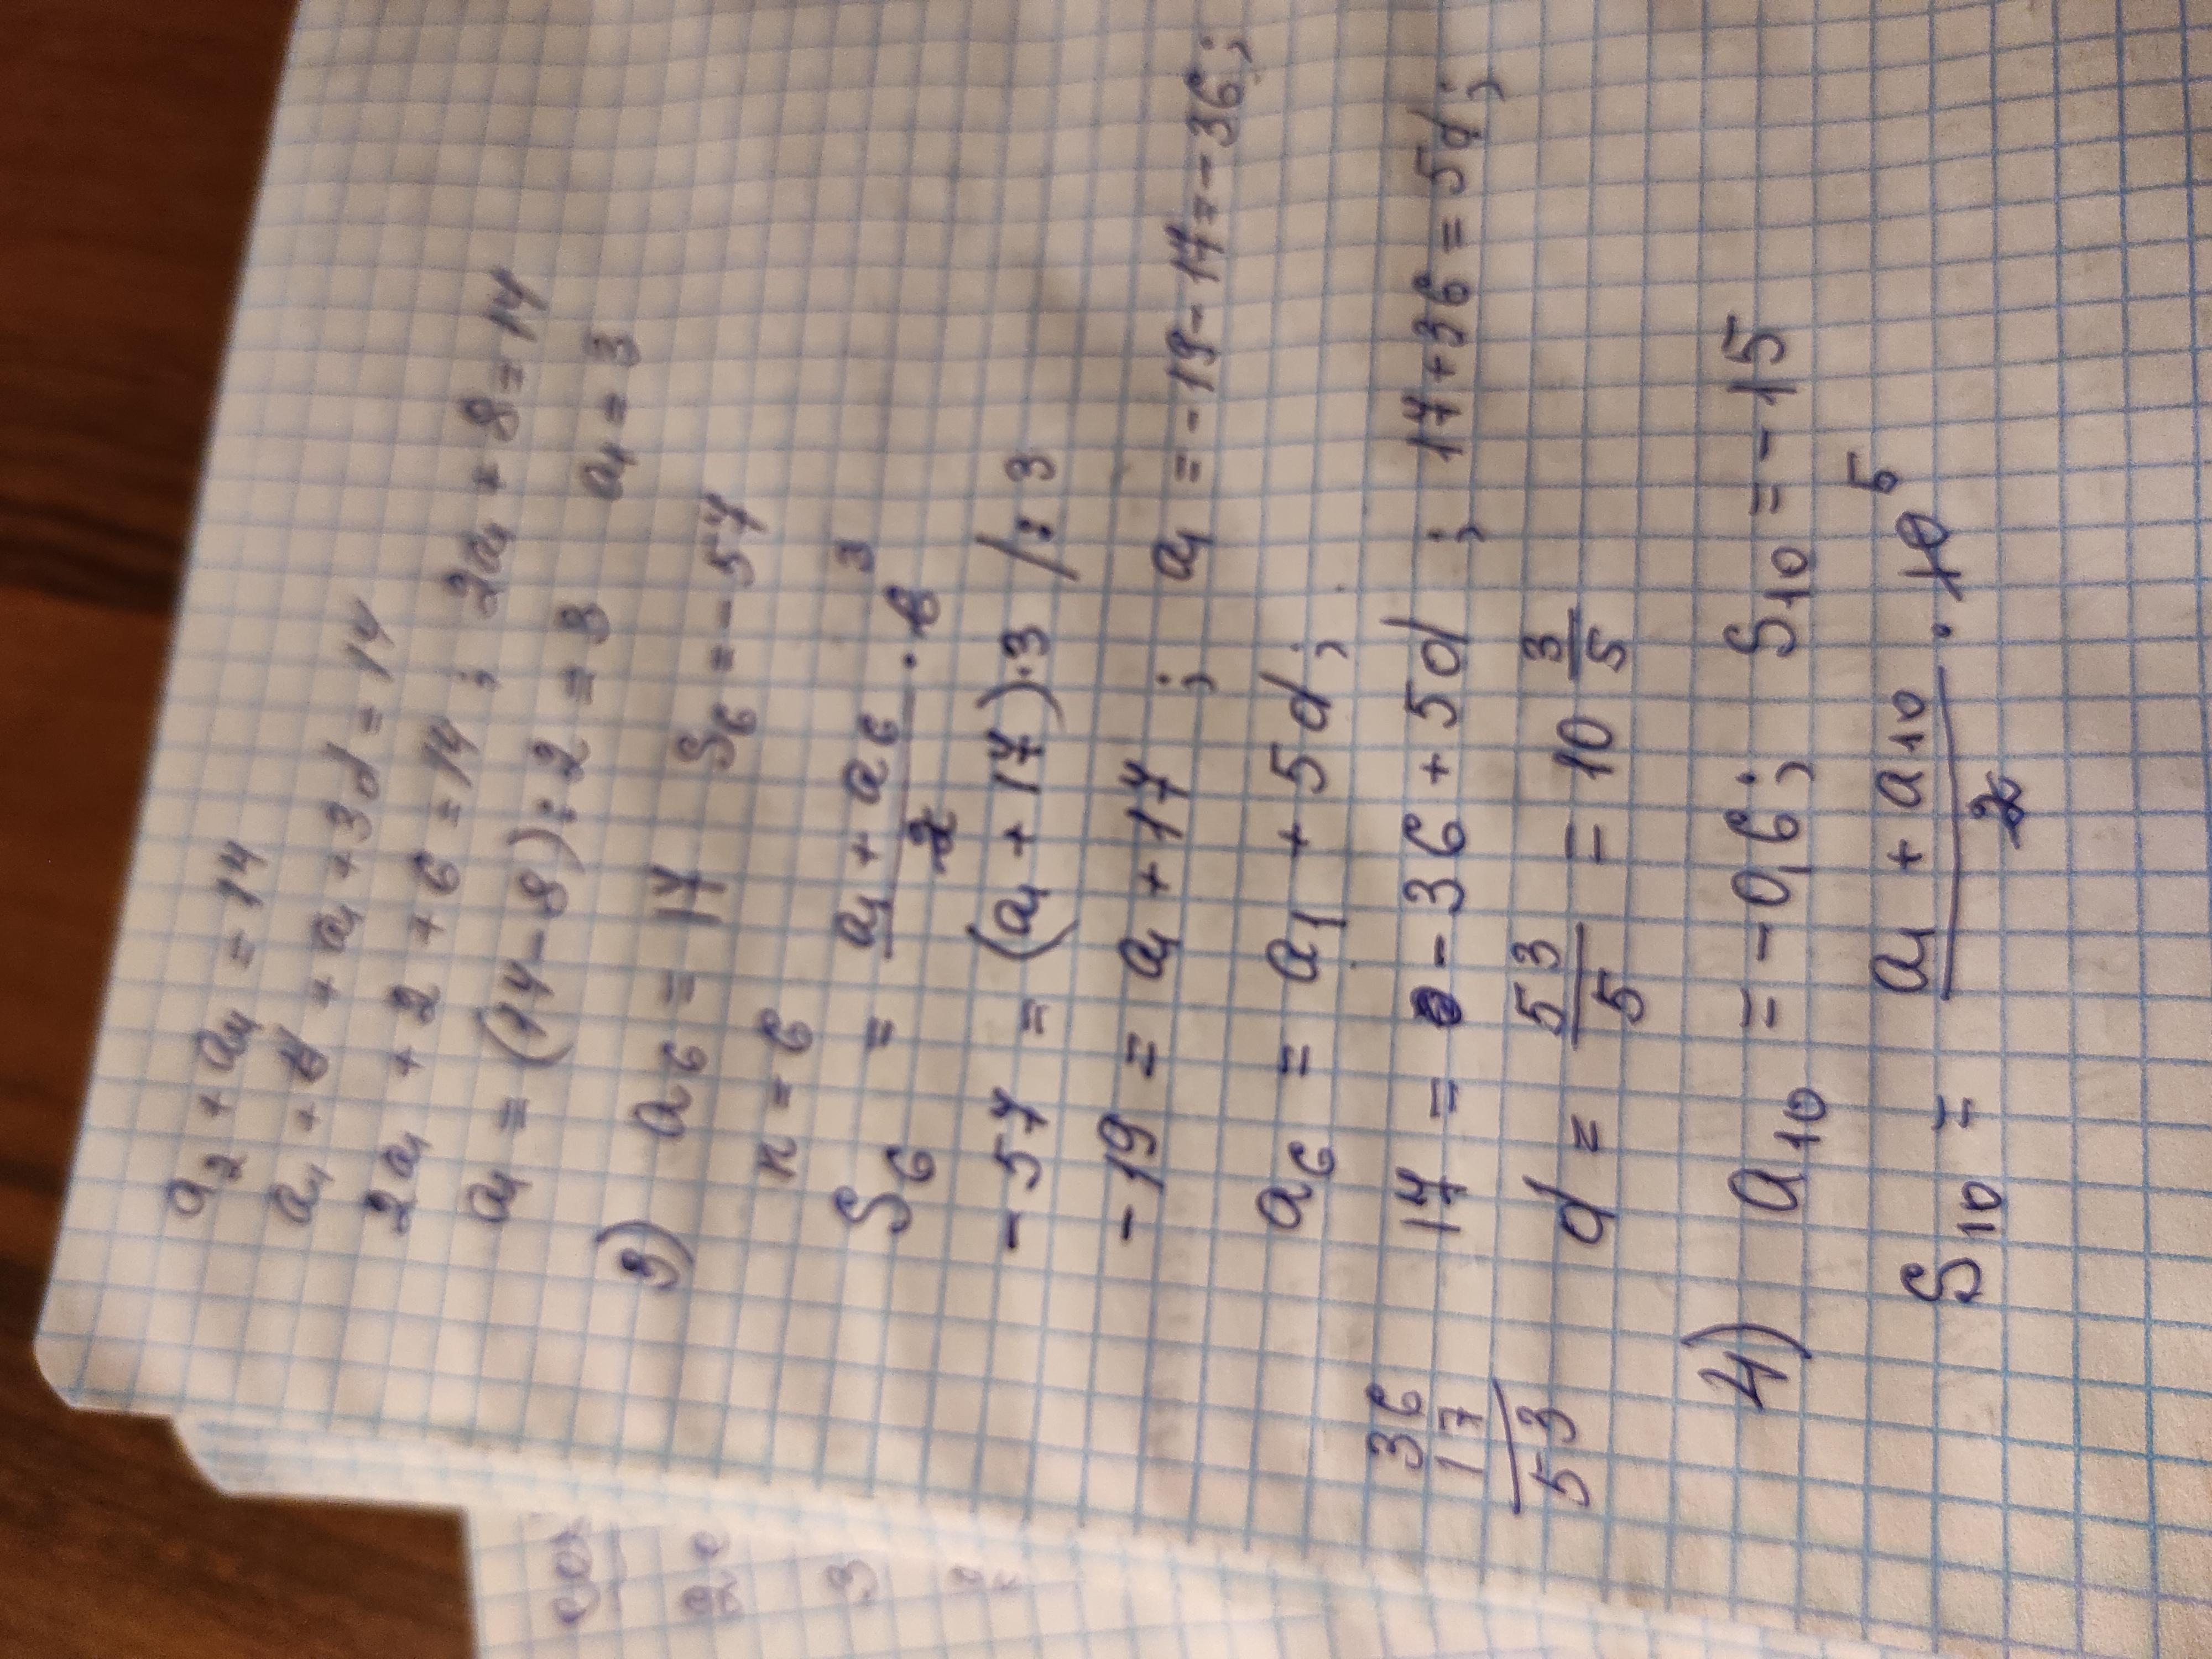 a₂ + a₄ = 14
a₁ + d + a₁ + 3d = 14
2a₁ + 2 + 6 = 14 ; 2a₁ + 8 = 14
a₁ = (14 - 8) : 2 = 3 a₁ = 3
3) a₆ = 17 S₆ = -57
n = 6
S₆ = (a₁ + a₆)/2 · 6 3
-57 = (a₁ + 17)·3 /:3
-19 = a₁ + 17 ; a₁ = -19 - 17 = -36;
a₆ = a₁ + 5d;
36 17 = -36 + 5d ; 17 + 36 = 5d;
17
53 d = 53/5 = 10 3/5
4) a₁₀ = -0,6; S₁₀ = -15
S₁₀ = (a₁ + a₁₀)/2 · 10 5